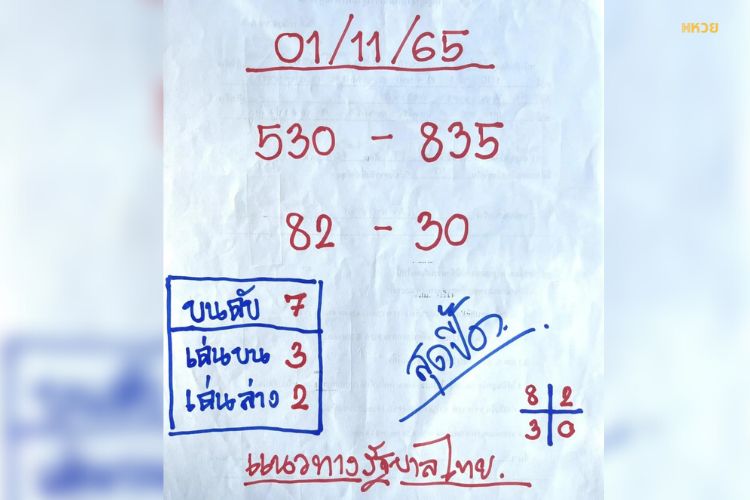 หวย
01/11/65
530 - 835
82 - 30
บนดับ 7
เด่นบน 3
เด่นล่าง 2
8 2
3 0
แนวทางรัฐบาลไทย.